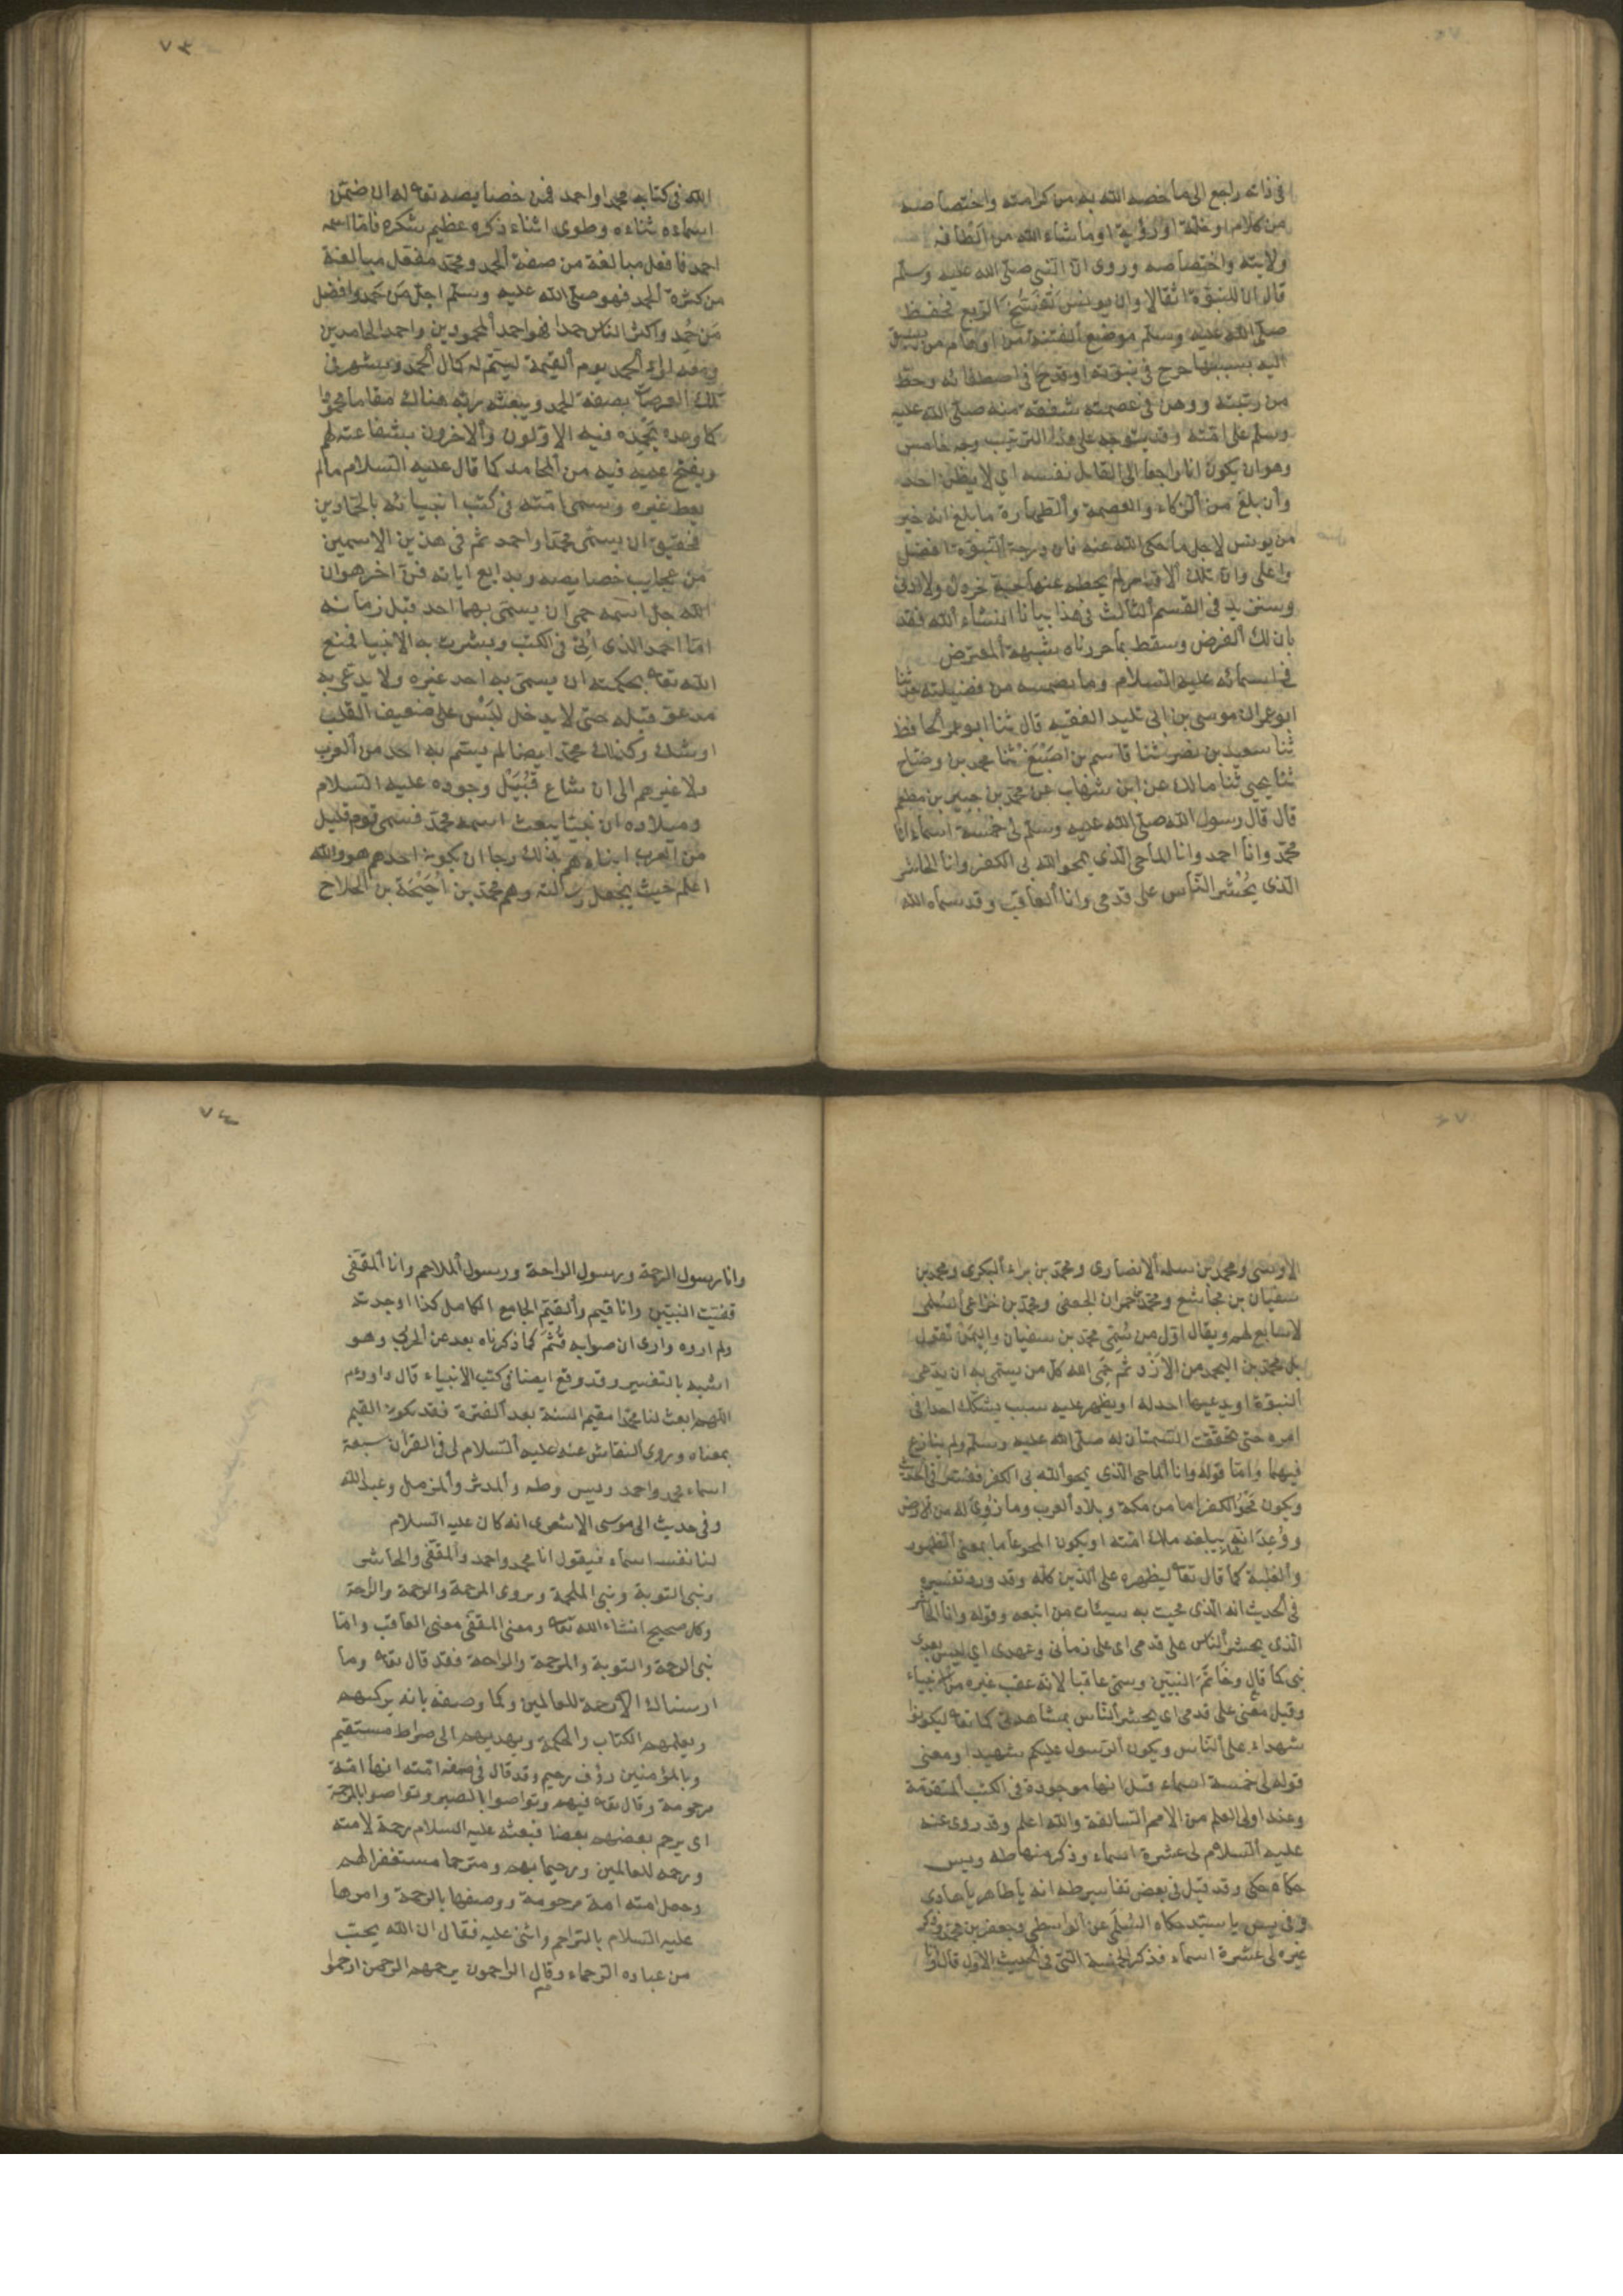 في ذاته راجع الى ما خصه الله به من كرامته واختصاصه
من كلام او خلة او رؤية او ما شاء الله من الطافه
ولايته واختصاصه وروى ان النبي صلى الله عليه وسلم
قال ان للنبوة اثقالا وان يونس تفسخ الربع فحفظ
صلى الله عليه وسلم موضع الفتنة من اوهام من يسبق
اليه بسببها جرح في نبوته او قدح في اصطفائه وحط
من رتبته ووهن في عصمته شفقة منه صلى الله عليه
وسلم على امته وقد يتوجه على هذا الترتيب وجه خامس
وهو ان يكون انا راجعا الى القائل نفسه اي لا يظن احد
وان بلغ من الزكاء والعصمة والطهارة ما بلغ انه خير
من يونس لاجل ما حكى الله عنه فان درجة النبوة افضل
واعلى وان تلك الاقدار لم يحطه عنها حبة خردل ولا ادنى
وسنزيد في القسم الثالث في هذا بيانا انشاء الله فقد
بان لك الغرض وسقط بما حررناه شبهة المعترض
في اسمائه عليه السلام وما تضمنه من فضيلته حدثنا
ابو عمران موسى بن ابي تليد الفقيه قال ثنا ابو عمر الحافظ
ثنا سعيد بن نصر ثنا قاسم بن اصبغ ثنا محمد بن وضاح
ثنا يحيى ثنا مالك عن ابن شهاب عن محمد بن جبير بن مطعم
قال قال رسول الله صلى الله عليه وسلم لى خمسة اسماء انا
محمد وانا احمد وانا الماحي الذي يمحو الله بي الكفر وانا الحاشر
الذى يحشر الناس على قدمي وانا العاقب وقد سماه الله
٧٣
الله في كتابه محمدا واحمد فمن خصايصه تعا له ان ضمن
اسماءه ثناءه وطوى اثناء ذكره عظيم شكره فاما اسمه
احمد فافعل مبالغة من صفة الحمد ومحمد مفعل مبالغة
من كثرة الحمد فهو صلى الله عليه وسلم اجل من حمد وافضل
من حمد واكثر الناس حمدا فهو احمد المحمودين واحمد الحامدين
ومعه لواء الحمد يوم القيمة ليتم له كمال الحمد ويشهر في
تلك العرصات بصفة الحمد ويبعثه ربه هناك مقاما محمودا
كما وعده يحمده فيه الاولون والاخرون بشفاعته لهم
ويفتح عليه فيه من المحامد كما قال عليه السلام ما لم
يعط غيره وسمى امته في كتب انبيائه بالحمادين
فحقيق ان يسمى محمدا واحمد ثم في هذين الاسمين
من عجايب خصايصه وبدايع اياته فن اخر هو ان
الله جل اسمه حمى ان يسمى بهما احد قبل زمانه
اما احمد الذى اتى في الكتب وبشرت به الانبيا فمنع
الله تعا بحكمته ان يسمى به احد غيره ولا يدعى به
مدعو قبله حتى لا يدخل لبس على ضعيف القلب
او شك وكذلك محمد ايضا لم يسم به احد من العرب
ولا غيرهم الى ان شاع قبيل وجوده عليه السلام
وميلاده ان نبيا يبعث اسمه محمد فسمى قوم قليل
من العرب ابناءهم بذلك رجا ان يكون احدهم هو والله
اعلم حيث يجعل رسالته وهم محمد بن احيحة بن الجلاح
الاوسى ومحمد بن مسلمة الانصارى ومحمد بن براء البكرى ومحمد بن
سفيان بن مجاشع ومحمد بن حمران الجعفي ومحمد بن خزاعي السلمى
لا سابع لهم ويقال اول من سمى محمد بن سفيان واليمن تقول
بل محمد بن اليحمد من الازد ثم حمى الله كل من يسمى به ان يدعى
النبوة او يدعيها احد له او يظهر عليه سبب يشكك احدا في
امره حتى تحققت السمتان له صلى الله عليه وسلم ولم ينازع
فيهما واما قوله وانا الماحي الذى يمحو الله بي الكفر ففسر في الحديث
ويكون محو الكفر اما من مكة وبلاد العرب وما زوى له من الارض
ووعد انه يبلغه ملك امته او يكون المحو عاما بمعنى الظهور
والغلبة كما قال تعا ليظهره على الدين كله وقد ورد تفسيره
في الحديث انه الذى محيت به سيئات من اتبعه وقوله وانا الحاشر
الذى يحشر الناس على قدمى اى على زمانى وعهدى اي ليس بعدى
نبي كما قال وخاتم النبيين وسمى عاقبا لانه عقب غيره من الانبياء
وقيل معنى على قدمى اى يحشر الناس بمشاهدتي كما تعا ليكونوا
شهداء على الناس ويكون الرسول عليكم شهيدا ومعنى
قوله لى خمسة اسماء قيل انها موجودة في الكتب المتقدمة
وعند اولى العلم من الامم السالفة والله اعلم وقد روى عنه
عليه السلام لى عشرة اسماء وذكر منها طه ويس
حكاه مكي وقد قيل في بعض تفاسير طه انه يا طاهر يا هادى
وفي يس يا سيد حكاه السلمي عن الواسطي وجعفر بن محمد وذكر
غيره لى عشرة اسماء فذكر الخمسة التى في الحديث الاول قال وانا
٧٤
وانا رسول الرحمة ورسول الراحة ورسول الملاحم وانا المقفى
قفيت النبيين وانا قيم والقيم الجامع الكامل كذا وجدته
ولم اروه وارى ان صوابه قثم كما ذكرناه بعد عن الحربي وهو
اشبه بالتفسير وقد وقع ايضا في كتب الانبياء قال داود عم
اللهم ابعث لنا محمدا مقيم السنة بعد الفترة فقد يكون القيم
بمعناه وروى النقاش عنه عليه السلام لى في القران سبعة
اسماء محمد واحمد ويس وطه والمدثر والمزمل وعبد الله
وفي حديث ابي موسى الاشعرى انه كان عليه السلام
لنا نفسه اسماء فيقول انا محمد واحمد والمقفى والحاشر
ونبى التوبة ونبي الملحمة ويروى المرحمة والرحمة والراحة
وكل صحيح انشاء الله تعا ومعنى المقفى معنى العاقب واما
نبى الرحمة والتوبة والمرحمة والراحة فقد قال تعا وما
ارسلناك الا رحمة للعالمين وكما وصفه بانه يزكيهم
ويعلمهم الكتاب والحكمة ويهديهم الى صراط مستقيم
وبالمؤمنين رؤف رحيم وقد قال في صفة امته انها امة
مرحومة وقال تعا فيهم وتواصوا بالصبر وتواصوا بالمرحمة
اى يرحم بعضهم بعضا فبعثه عليه السلام رحمة لامته
ورحمة للعالمين ورحيما بهم ومترحما مستغفرا لهم
وجعل امته امة مرحومة ووصفها بالرحمة وامرها
عليه السلام بالتراحم واثنى عليه فقال ان الله يحب
من عباده الرحماء وقال الراحمون يرحمهم الرحمن ارحموا